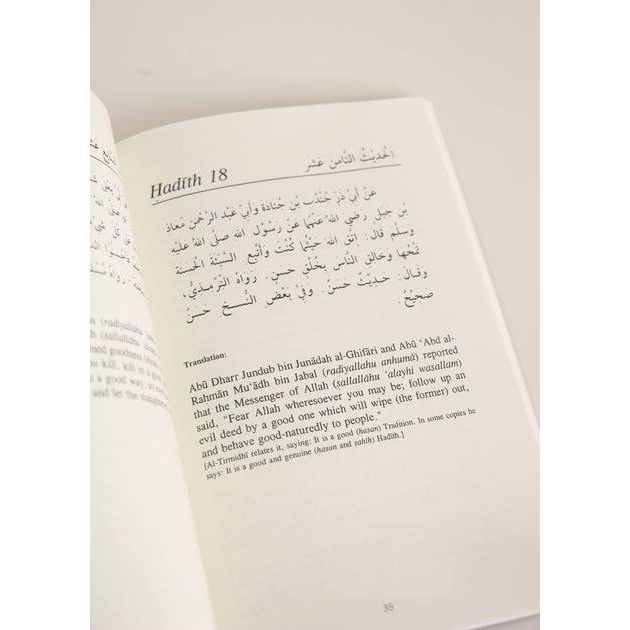 (radiyallāhu
(sallallāhu
goodness
kill, kill in a
a good way, so
and let the
Ḥadīth 18
اَلْحَدِيْثُ الثَّامِنَ عَشَرَ
عَنْ أَبِيْ ذَرٍّ جُنْدُبِ بْنِ جُنَادَةَ وَأَبِيْ عَبْدِ الرَّحْمٰنِ مُعَاذِ
بْنِ جَبَلٍ رَضِيَ اللهُ عَنْهُمَا عَنْ رَسُوْلِ اللهِ صَلَّى اللهُ عَلَيْهِ
وَسَلَّمَ قَالَ: اِتَّقِ اللهَ حَيْثُمَا كُنْتَ وَأَتْبِعِ السَّيِّئَةَ الْحَسَنَةَ
تَمْحُهَا وَخَالِقِ النَّاسَ بِخُلُقٍ حَسَنٍ. رَوَاهُ التِّرْمِذِيُّ،
وَقَالَ: حَدِيْثٌ حَسَنٌ. وَفِيْ بَعْضِ النُّسَخِ حَسَنٌ
صَحِيْحٌ.
Translation:
Abū Dharr Jundub bin Junādah al-Ghifāri and Abū ‘Abd al-
Rahmān Mu‘ādh bin Jabal (radiyallahu anhumā) reported
that the Messenger of Allah (sallallāhu ‘alayhi wasallam)
said, "Fear Allah wheresoever you may be; follow up an
evil deed by a good one which will wipe (the former) out,
and behave good-naturedly to people."
[Al-Tirmidhī relates it, saying: It is a good (hasan) Tradition. In some copies he
says: It is a good and genuine (hasan and sahīh) Hadīth.]
35